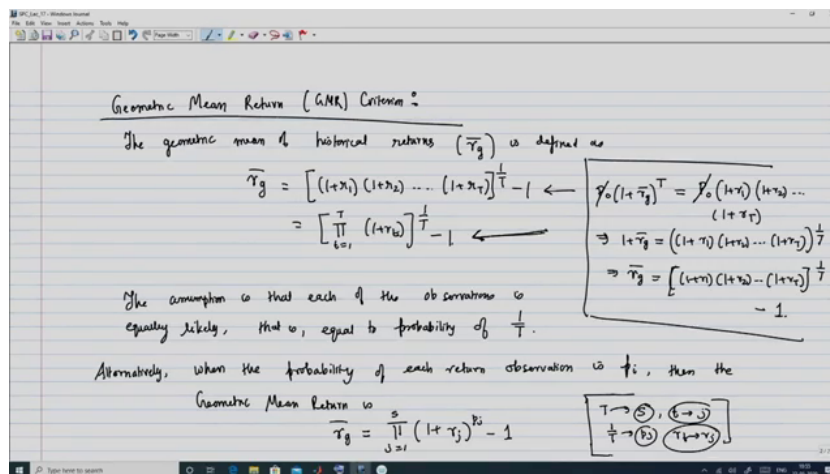 SPC_Lec_17 - Windows Journal
File Edit View Insert Actions Tools Help
Page Width
Geometric Mean Return (GMR) Criterion :
The geometric mean of historical returns (r̄g) is defined as
r̄g = [(1+r1) (1+r2) .... (1+rT)]^(1/T) - 1 ←
= [∏_{t=1}^{T} (1+rt)]^(1/T) - 1 ←
P0 (1+r̄g)^T = P0 (1+r1) (1+r2) ...
(1+rT)
⇒ 1+r̄g = ((1+r1) (1+r2) ... (1+rT))^(1/T)
⇒ r̄g = [(1+r1) (1+r2) ... (1+rT)]^(1/T)
- 1.
The assumption is that each of the observations is
equally likely, that is, equal to probability of 1/T.
Alternatively, when the probability of each return observation is pi, then the
Geometric Mean Return is
r̄g = ∏_{j=1}^{s} (1+rj)^(pj) - 1
T → s, t → j
1/T → pj, rt → rj
Type here to search